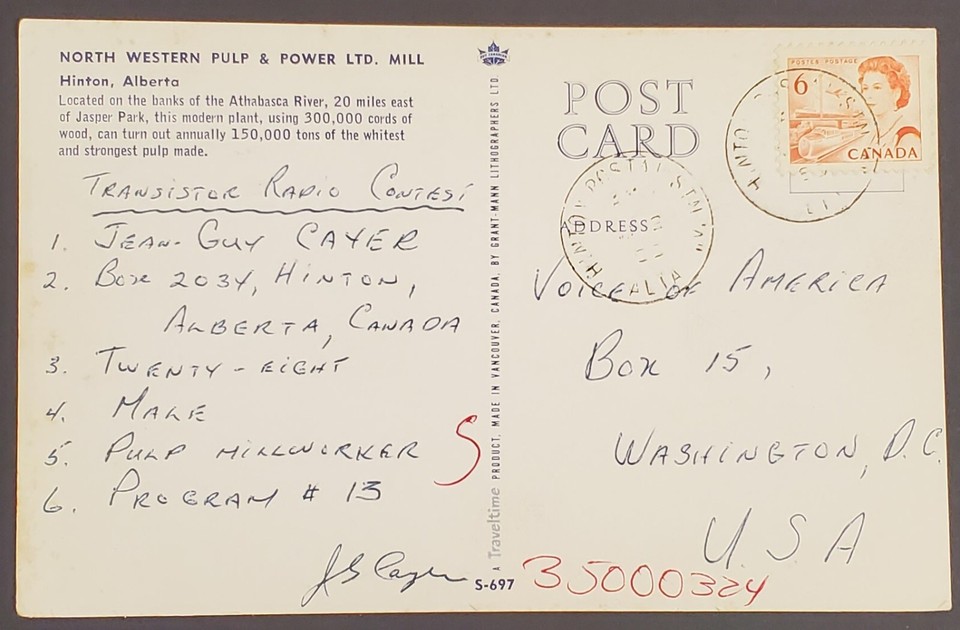 NORTH WESTERN PULP & POWER LTD. MILL
Hinton, Alberta
Located on the banks of the Athabasca River, 20 miles east
of Jasper Park, this modern plant, using 300,000 cords of
wood, can turn out annually 150,000 tons of the whitest
and strongest pulp made.
TRANSISTOR RADIO CONTEST
1. JEAN-GUY CAYER
2. BOX 2034, HINTON,
ALBERTA, CANADA
3. TWENTY-EIGHT
4. MALE
5. PULP MILLWORKER
6. PROGRAM # 13
JG Cayer
S
A Traveltime PRODUCT, MADE IN VANCOUVER, CANADA, BY GRANT-MANN LITHOGRAPHERS LTD.
S-697
POST
CARD
ADDRESS
POSTES POSTAGE
6
CANADA
HINTON
ALTA
VOICE OF AMERICA
BOX 15,
WASHINGTON, D.C.
U.S.A
35000324